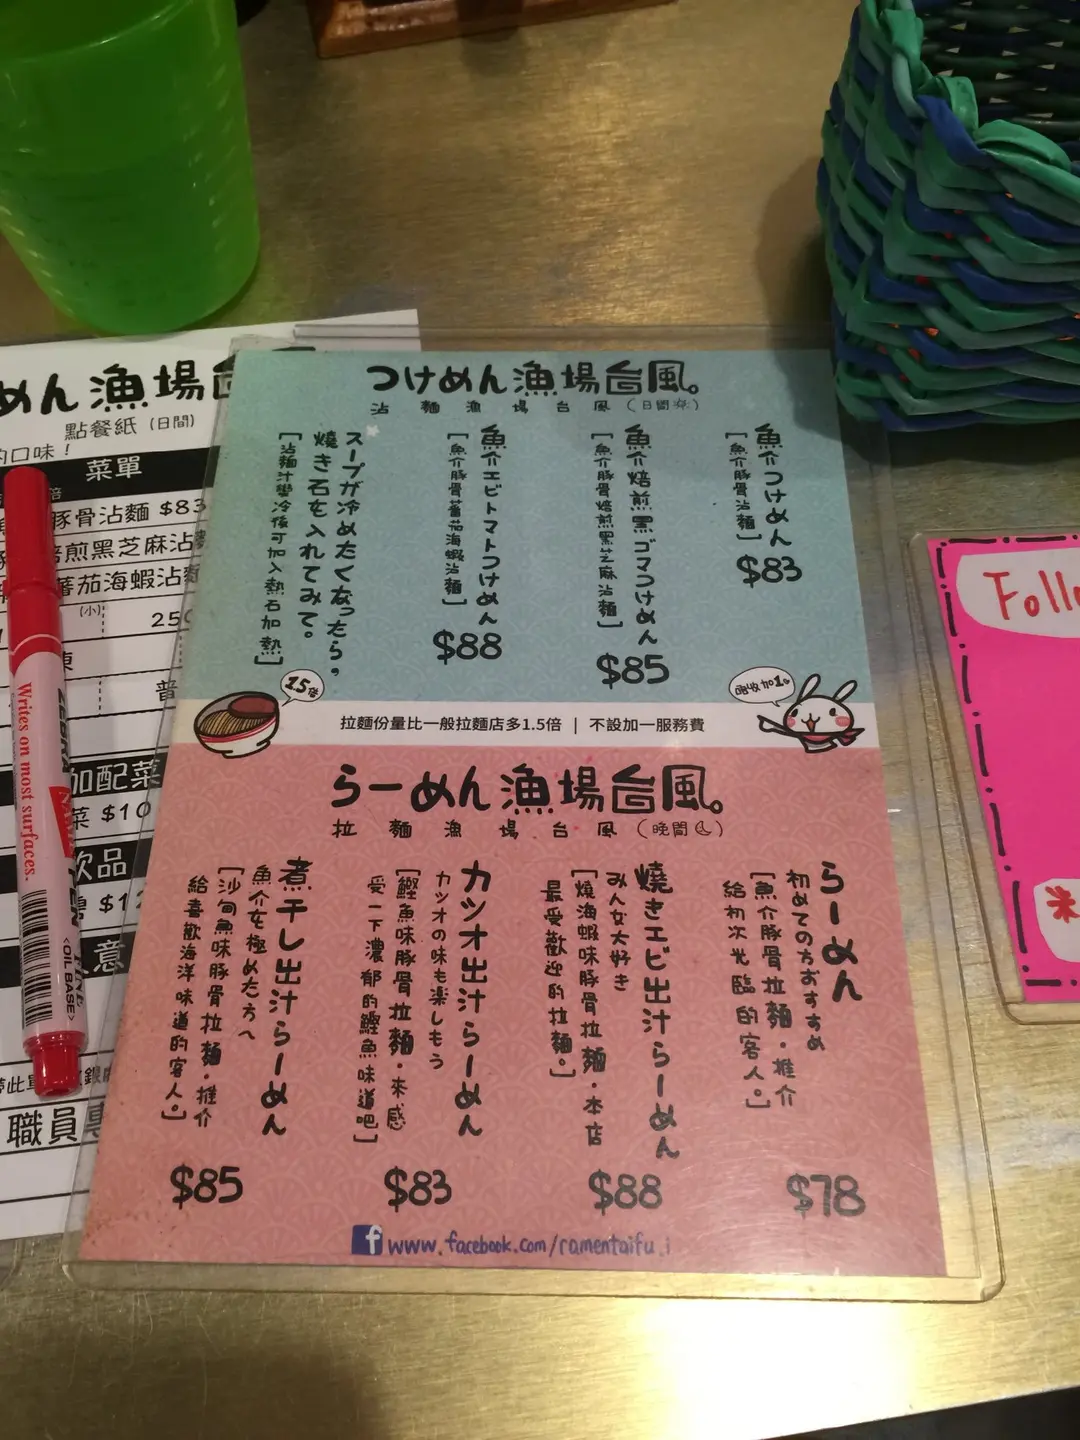 めん漁場台
點餐紙(日間)
的口味！
菜單
豚骨沾麵 $83
焙煎黑芝麻沾
蕃茄海蝦沾麵
(小)
250
普
加配菜
菜 $10
飲品
$12
意
職員專
Writes on most surfaces.
<OIL BASE>
つけめん漁場台風。
沾麵漁場台風(日間)
魚介つけめん
[魚介豚骨沾麵]
$83
魚介焙煎黒ゴマつけめん
[魚介豚骨焙煎黑芝麻沾麵]
$85
魚介エビトマトつけめん
[魚介豚骨蕃茄海蝦沾麵]
$88
スープが冷めたくなったら。
燒き石を入れてみて。
[沾麵汁變冷後可加入熱石加熱]
1.5倍
拉麵份量比一般拉麵店多1.5倍 | 不設加一服務費
唔收加1
らーめん漁場台風。
拉麵漁場台風(晚間)
らーめん
初めての方おすすめ
[魚介豚骨拉麵·推介
給初次光臨的客人。]
$78
燒きエビ出汁らーめん
みん女大好き
[燒海蝦味豚骨拉麵·本店
最受歡迎的拉麵。]
$88
カツオ出汁らーめん
カツオの味も楽しもう
[鰹魚味豚骨拉麵·來感
受一下濃郁的鰹魚味道吧]
$83
煮干し出汁らーめん
魚介を極めた方へ
[沙甸魚味豚骨拉麵·推介
給喜歡海洋味道的客人。]
$85
f www.facebook.com/ramentaifu
Follo
米